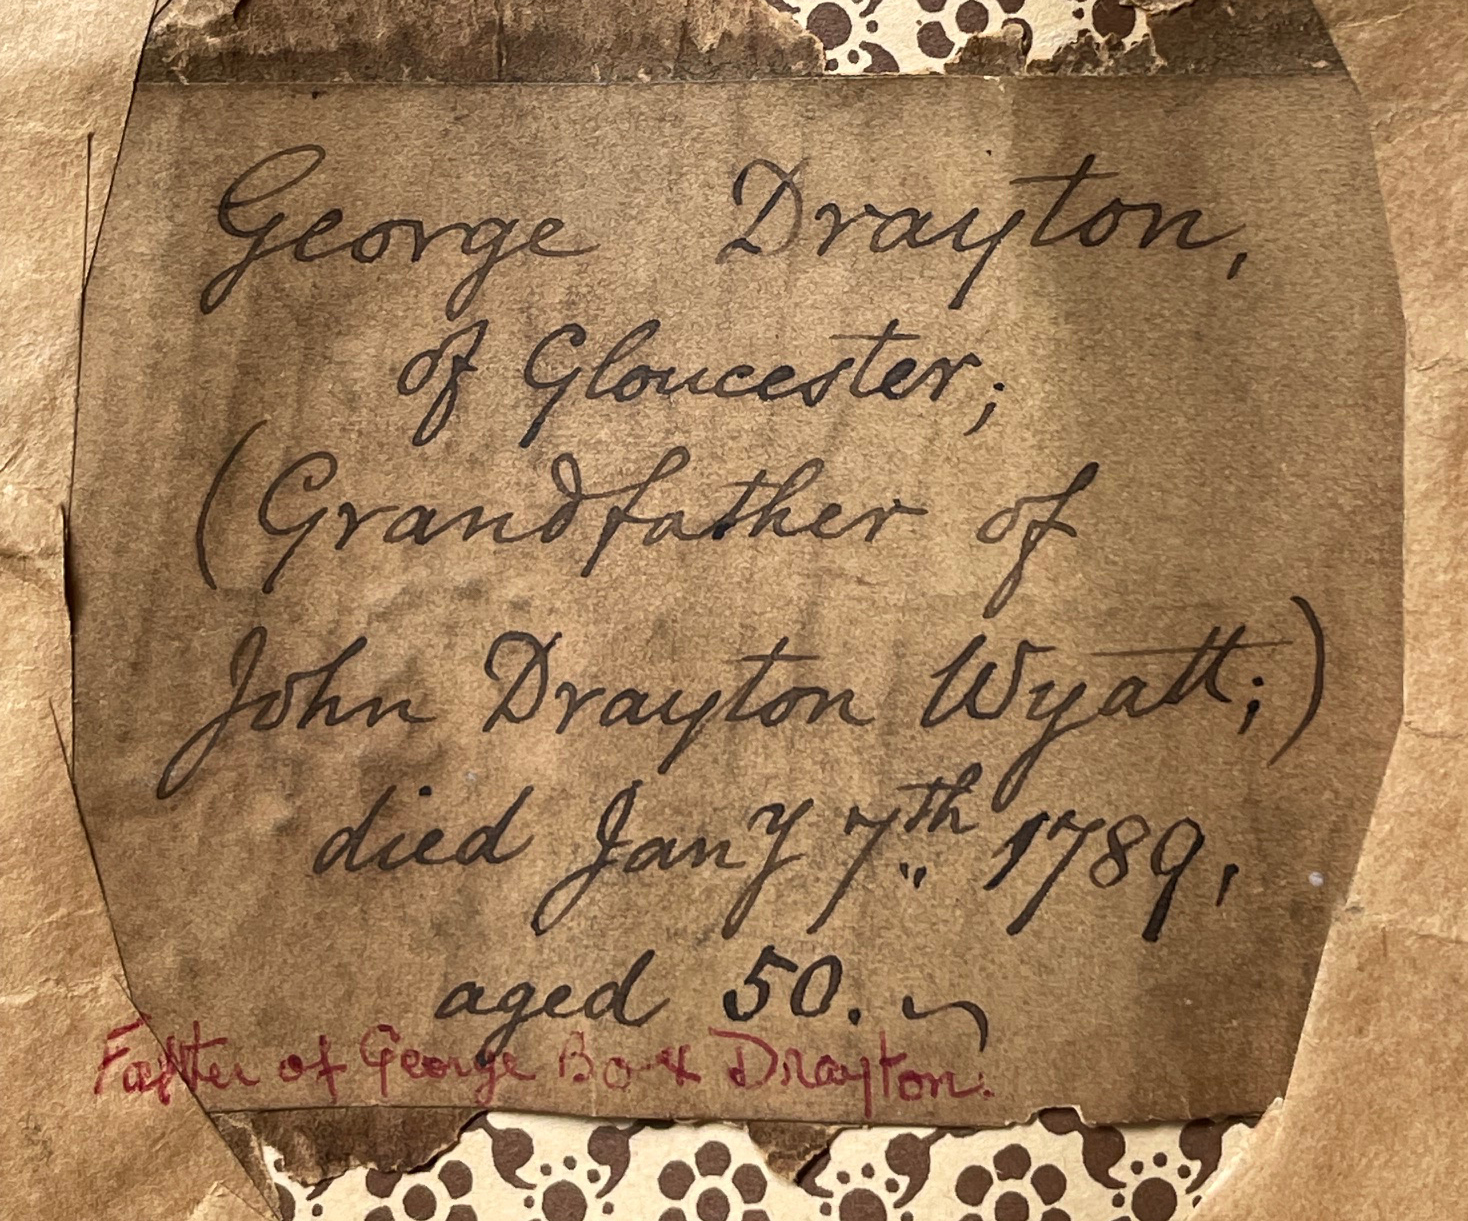 George Drayton,
of Gloucester;
(Grandfather of
John Drayton Wyatt;)
died Jany 7th 1789,
aged 50.
Father of George Drayton.